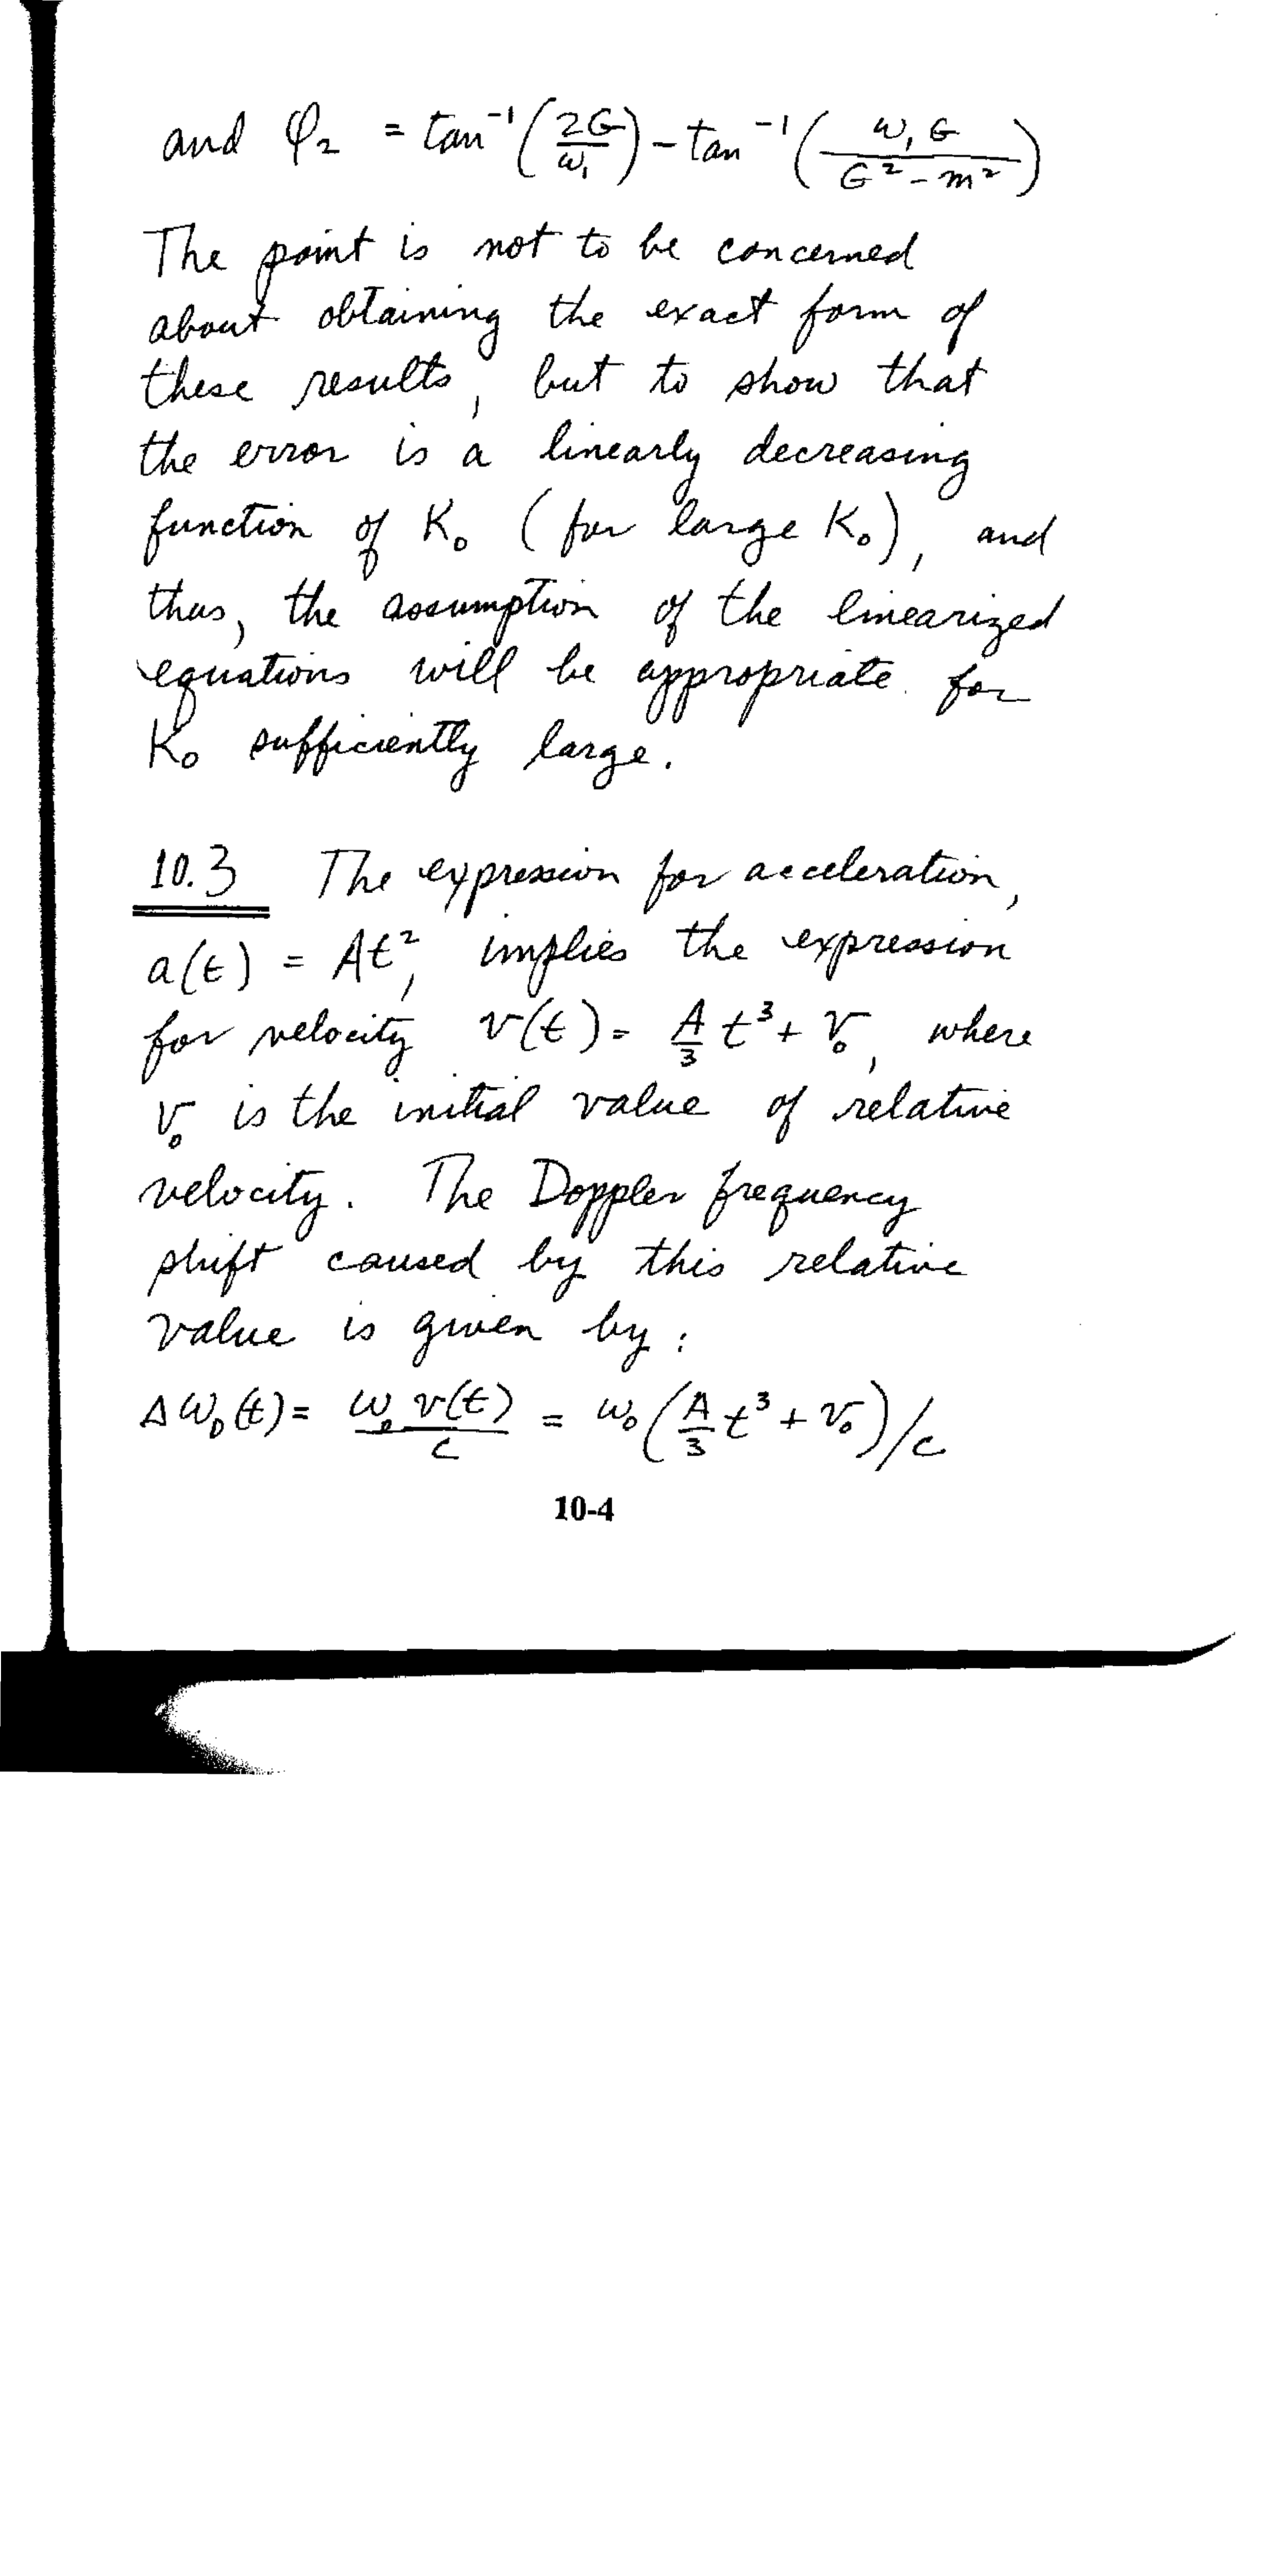 and φ₂ = tan⁻¹(2G/ω₁) - tan⁻¹(ω₁G/(G² - m²))
The point is not to be concerned
about obtaining the exact form of
these results, but to show that
the error is a linearly decreasing
function of K₀ (for large K₀), and
thus, the assumption of the linearized
equations will be appropriate for
K₀ sufficiently large.
10.3 The expression for acceleration,
a(t) = At², implies the expression
for velocity v(t) = A/3 t³ + V₀, where
V₀ is the initial value of relative
velocity. The Doppler frequency
shift caused by this relative
value is given by:
Δω_D(t) = ω₀ v(t)/c = ω₀(A/3 t³ + v₀)/c
10-4